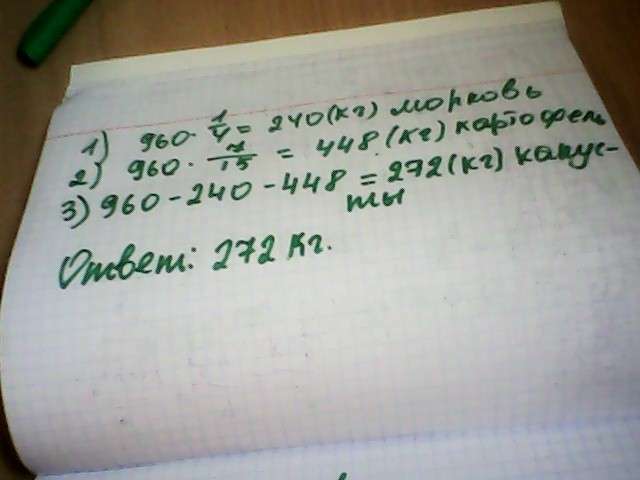 1) 960 · 1/4 = 240 (кг) морковь
2) 960 · 7/15 = 448 (кг) картофель
3) 960 - 240 - 448 = 272 (кг) капус-
ты
Ответ: 272 кг.